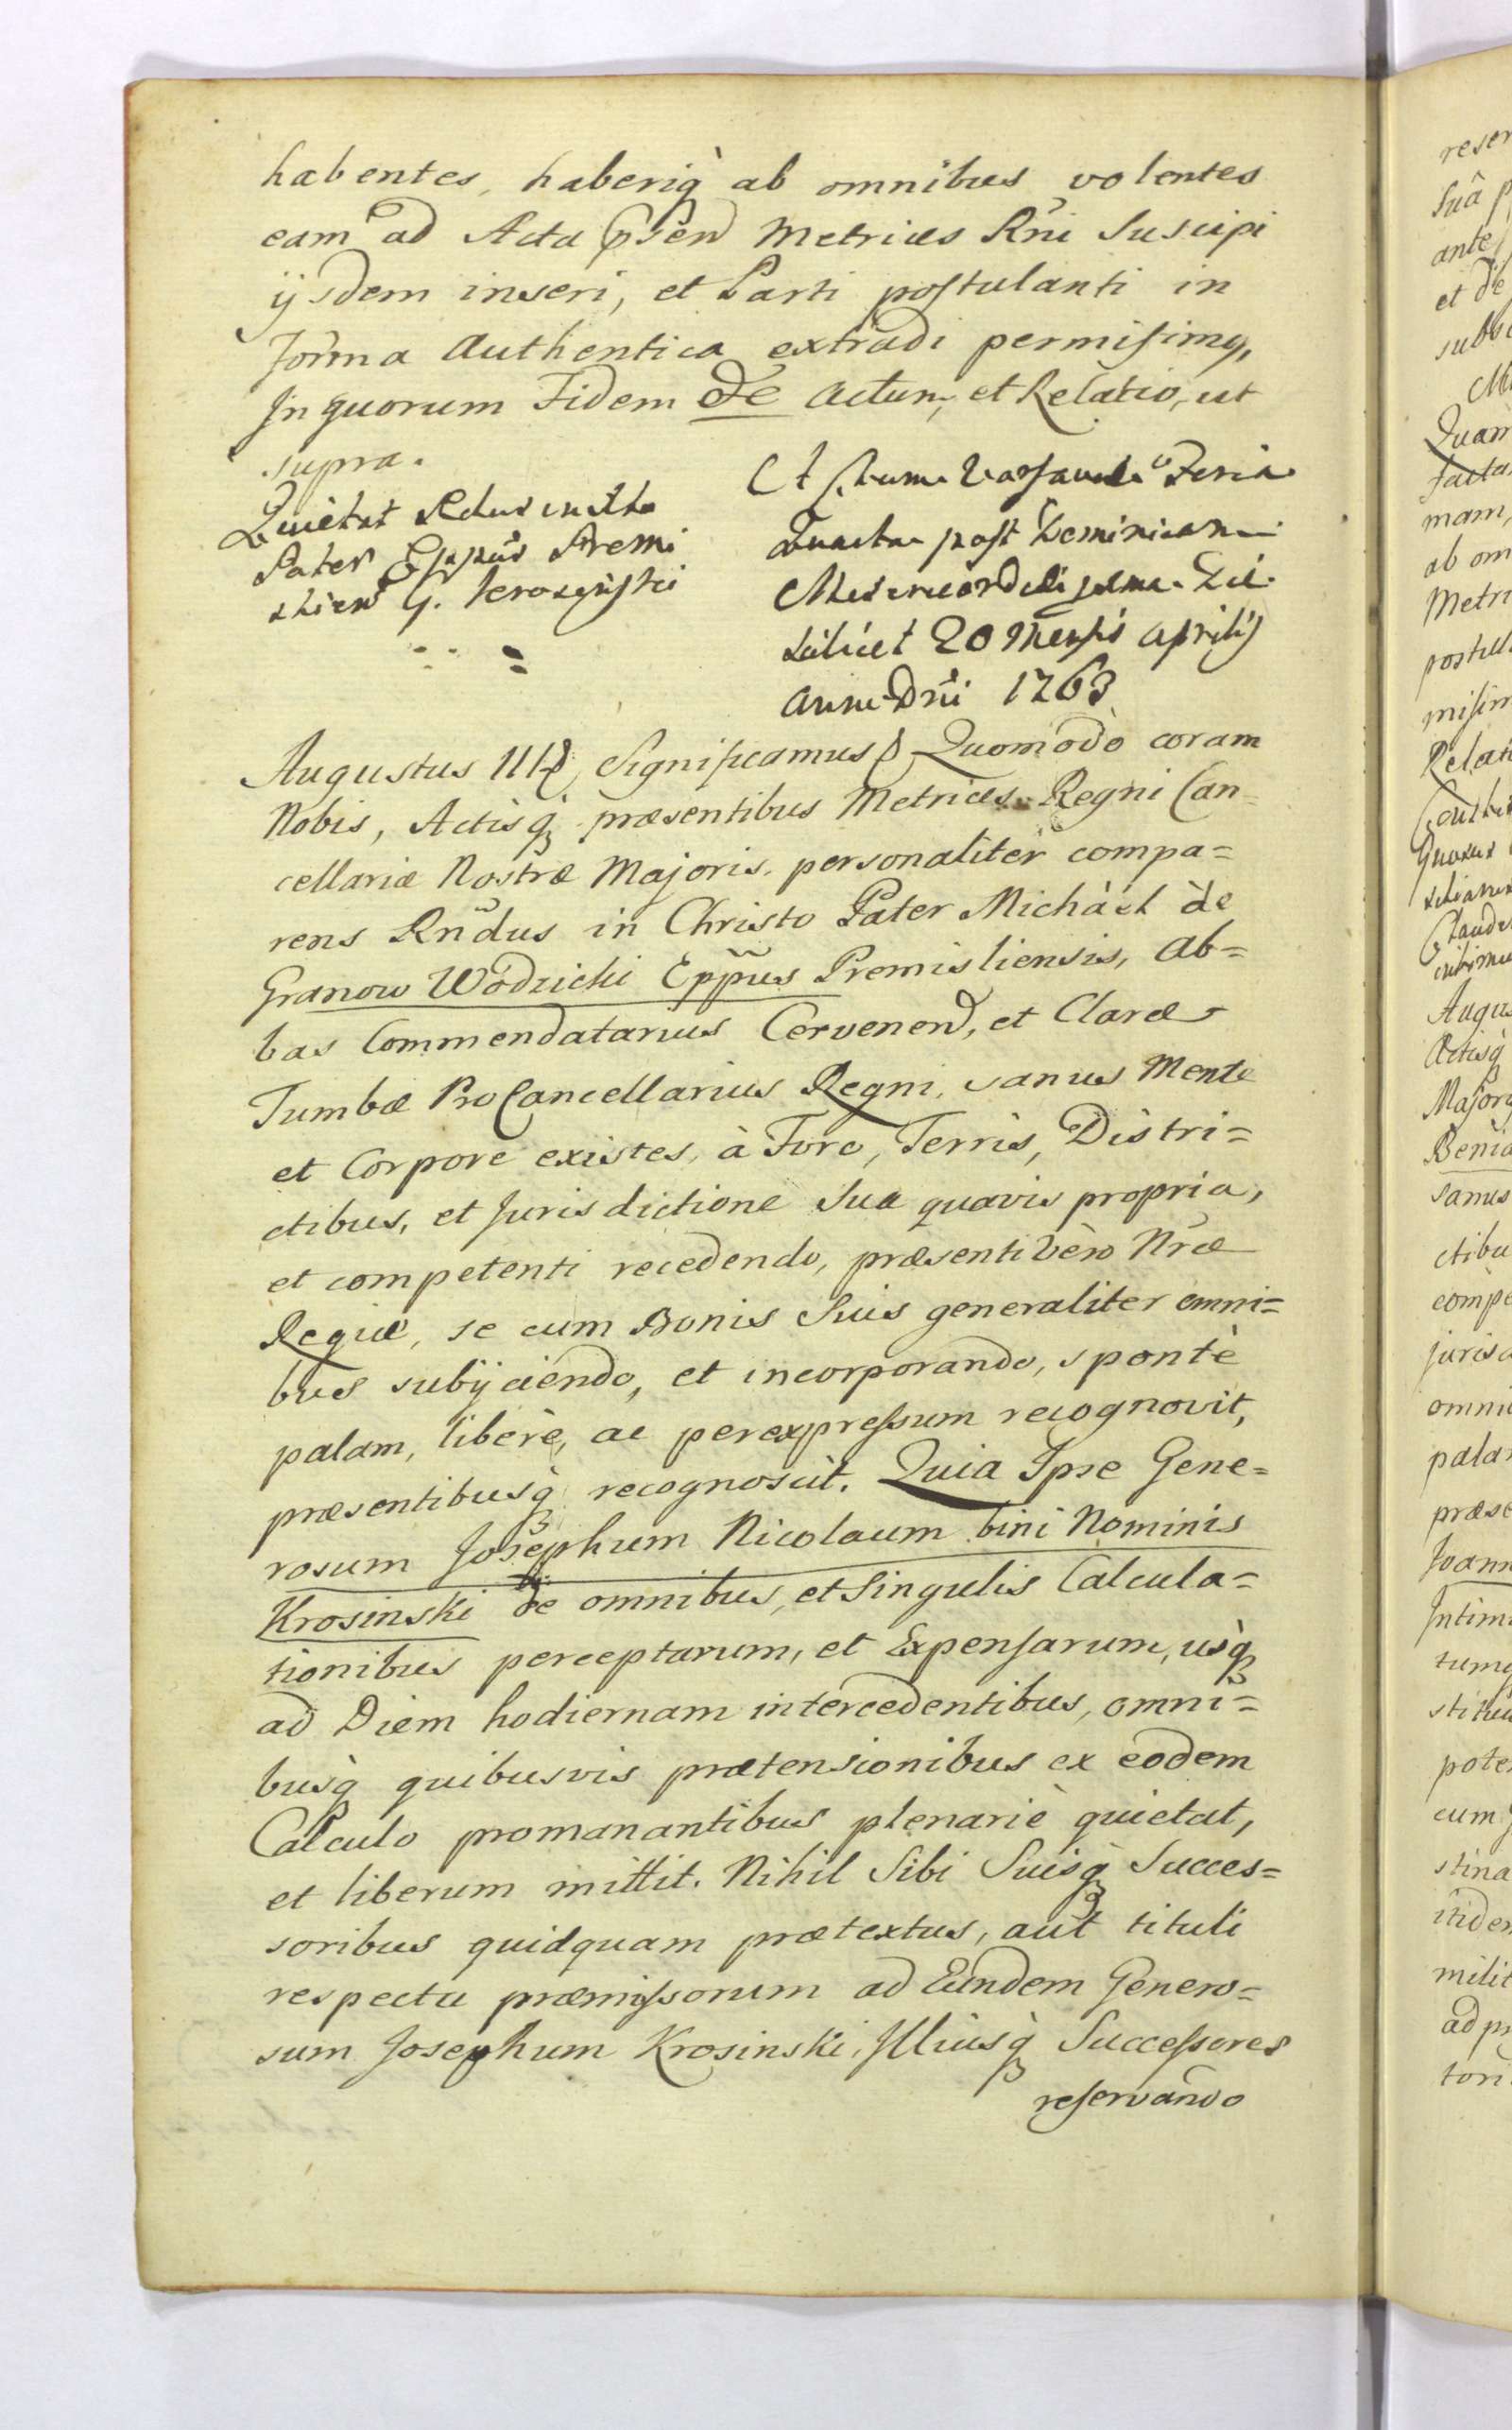 habentes, haberiq́ ab omnibus volentes
eam ad Acta psen Metrices Rni Suscipi
ijsdem inseri, et Parti postulanti in
forma Authentica extradi permisimq,
In quorum Fidem &c Actum, et Relatio, ut
supra.
Quietat Rdus in Xto
Pater Eppus Premi
slien G. Krosinski
Actum Varsaviae Feria
Quarta post Dominicam
Misericordiae Die
scilicet 20 Mensis Aprilis
Anno Dni 1763
Augustus III Significamus Quomodo coram
Nobis, Actisq́ præsentibus Metrices Regni Can-
cellariæ Nostræ Majoris, personaliter compa=
rens Rndus in Christo Pater Michael de
Granow Wodzicki Eppus Premisliensis, Ab=
bas Commendatarius Cervenen, et Claræ
Tumbæ ProCancellarius Regni, sanus Mente
et Corpore existes, à Foro, Terris, Distri=
ctibus, et Jurisdictione Sua quavis propria,
et competenti recedendo, præsenti verò Nræ
Regiæ, se cum Bonis Suis generaliter omni=
bus subijciendo, et incorporando, spontè
palam, liberè, ac perexpressum recognovit,
præsentibusq́ recognoscit. Quia Ipse Gene=
rosum Josephum Nicolaum bini Nominis
Krosinski de omnibus, et Singulis Calcula=
tionibus perceptarum, et Expensarum, usq́
ad Diem hodiernam intercedentibus, omni=
busq́ quibusvis prætensionibus ex eodem
Calculo promanantibus plenariè quietat,
et liberum mittit. Nihil Sibi Suisq́ Succes=
soribus quidquam prætextus, aut tituli
respectu præmissorum ad Eundem Genero=
sum Josephum Krosinski, Illiusq́ Successores
reservando